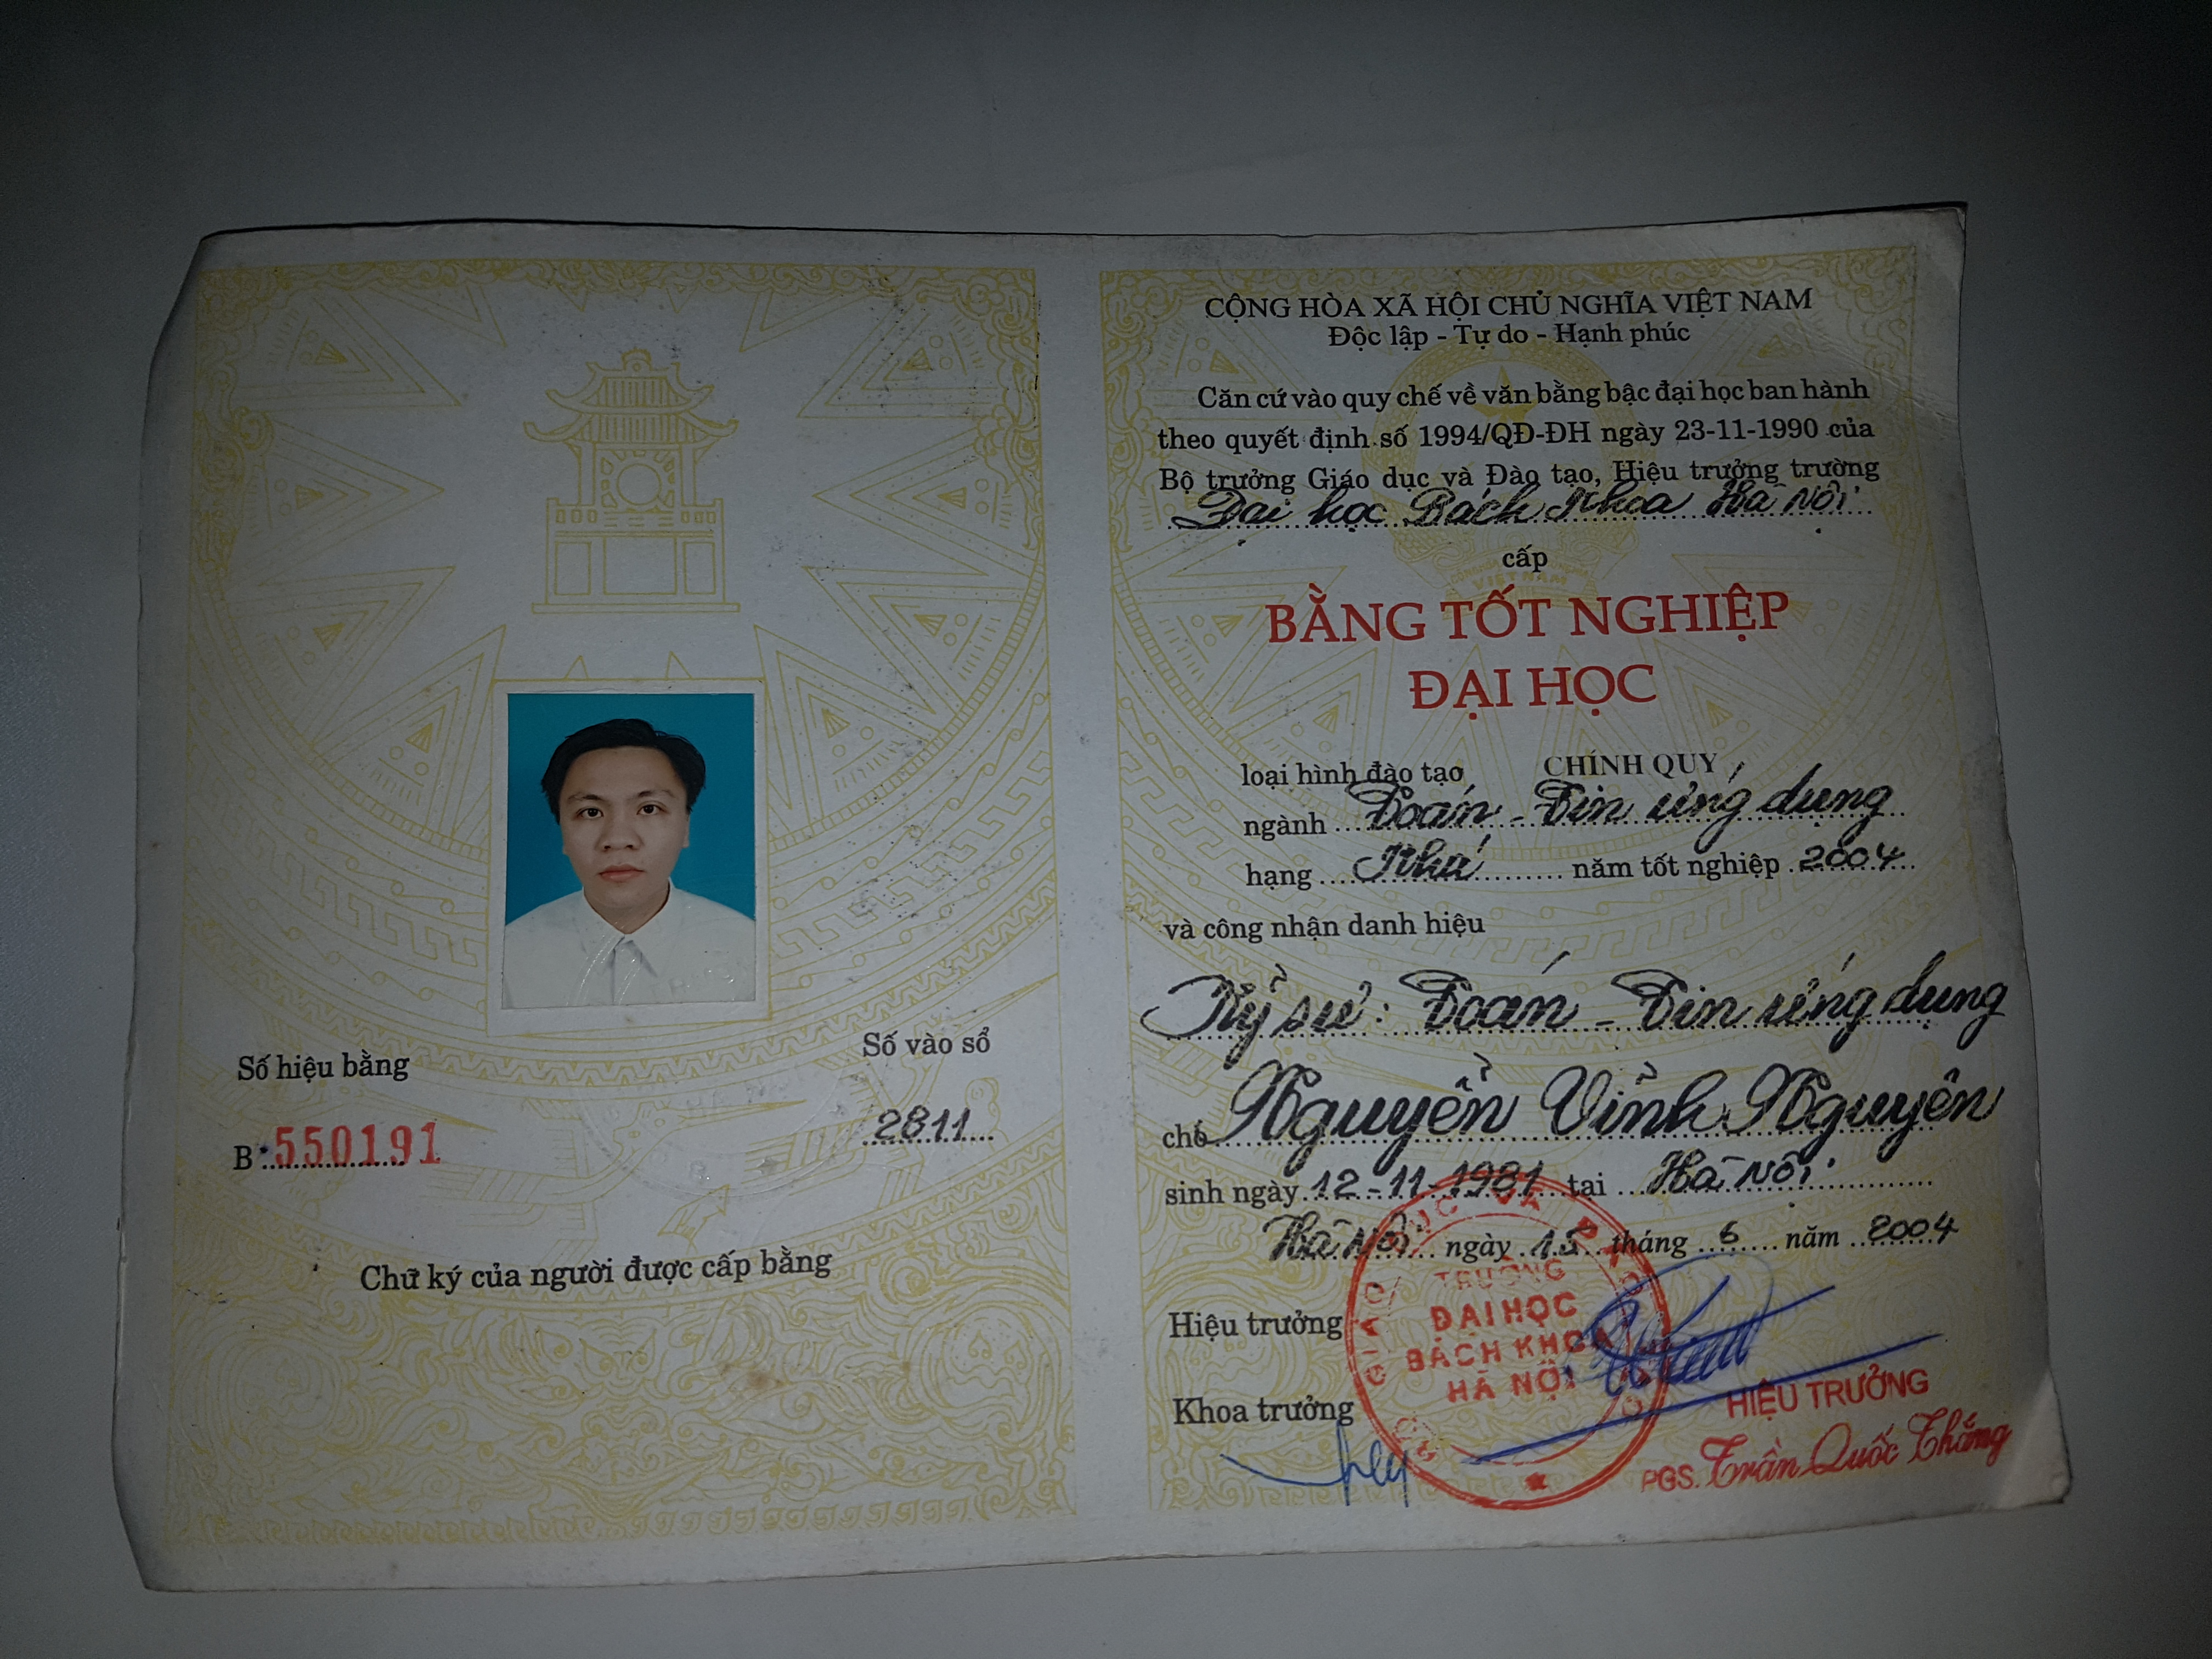 Số hiệu bằng
B 550191
Số vào sổ
2811
Chữ ký của người được cấp bằng
CỘNG HÒA XÃ HỘI CHỦ NGHĨA VIỆT NAM
Độc lập - Tự do - Hạnh phúc
Căn cứ vào quy chế về văn bằng bậc đại học ban hành
theo quyết định số 1994/QĐ-ĐH ngày 23-11-1990 của
Bộ trưởng Giáo dục và Đào tạo, Hiệu trưởng trường
Đại học Bách Khoa Hà Nội
cấp
BẰNG TỐT NGHIỆP
ĐẠI HỌC
loại hình đào tạo CHÍNH QUY
ngành Toán - Tin ứng dụng
hạng Khá năm tốt nghiệp 2004
và công nhận danh hiệu
Kỹ sư: Toán - Tin ứng dụng
cho Nguyễn Vĩnh Nguyên
sinh ngày 12-11-1981 tại Hà Nội
Hà Nội ngày 15 tháng 6 năm 2004
Hiệu trưởng
TRƯỜNG
ĐẠI HỌC
BÁCH KHOA
HÀ NỘI
Khoa trưởng
HIỆU TRƯỞNG
PGS. Trần Quốc Thắng